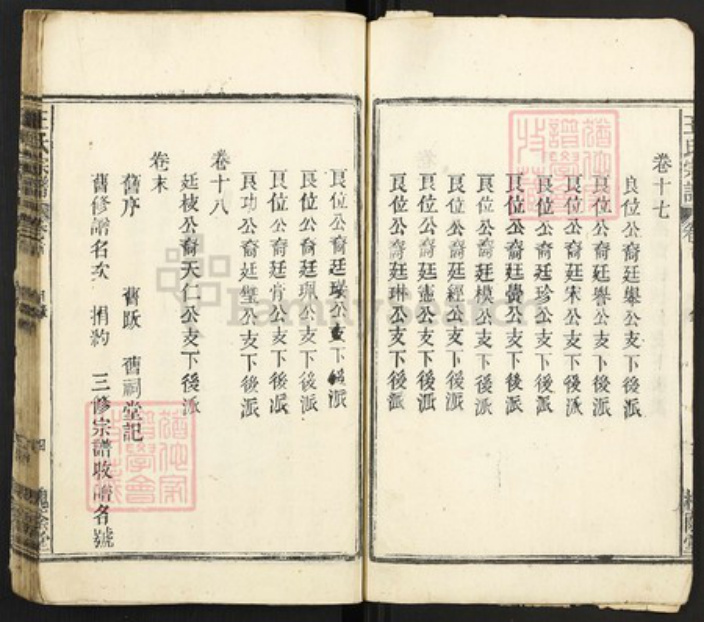 卷十七
良位公裔廷舉公支下後派
良位公裔廷譽公支下後派
良位公裔廷宋公支下後派
良位公裔廷珍公支下後派
良位公裔廷譽公支下後派
良位公裔廷模公支下後派
良位公裔廷經公支下後派
良位公裔廷憲公支下後派
良位公裔廷琳公支下後派
良位公裔廷瑛公支下後派
良位公裔廷珮公支下後派
良位公裔廷公支下後派
良功公裔廷璧公支下後派
卷十八
廷枝公裔天仁公支下後派
卷末
舊序 舊跋 舊祠堂記
舊修譜名次 捐約 三修宗譜收譜名號
王氏宗譜
槐蔭堂
FamilySearch